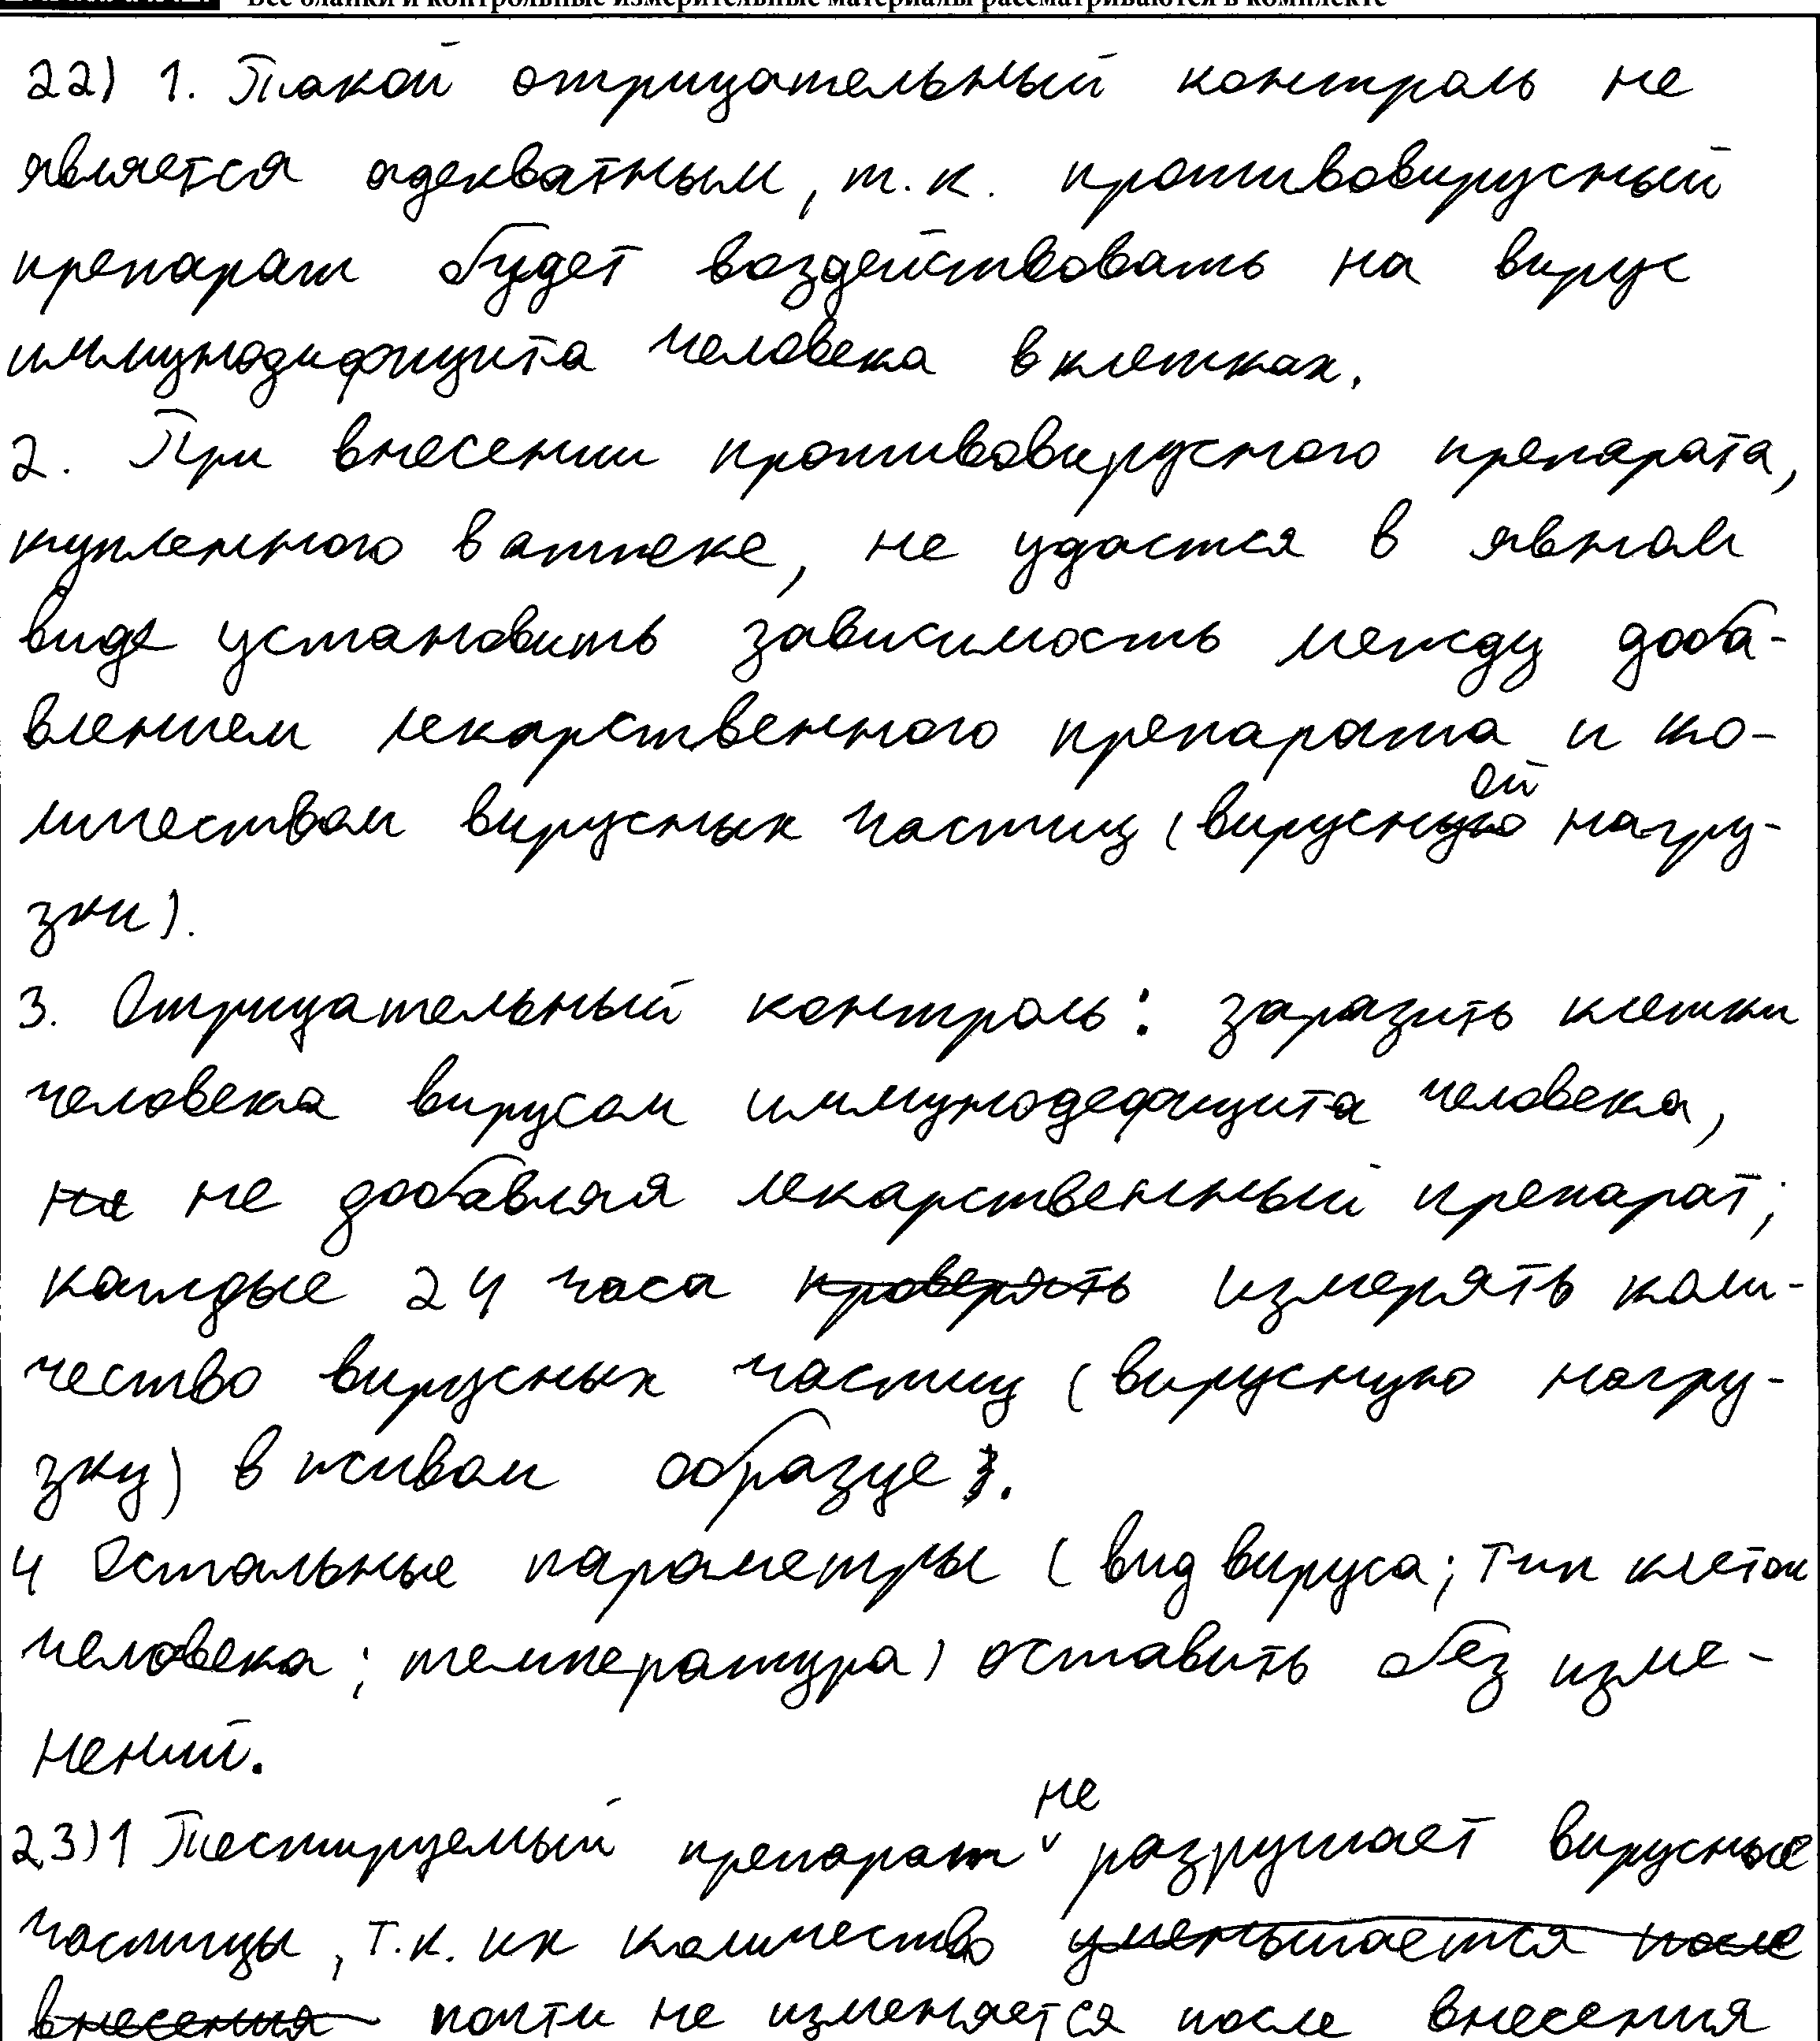 Все бланки и контрольные измерительные материалы рассматриваются в комплекте
22) 1. Такой отрицательный контроль не
является адекватным, т.к. противовирусный
препарат будет воздействовать на вирус
иммунодифицита человека в клетках.
2. При внесении противовирусного препарата,
купленного в аптеке, не удастся в явном
виде установить зависимость между доба-
влением лекарственного препарата и ко-
личеством вирусных частиц (вирусной нагру-
зки).
3. Отрицательный контроль: заразить клетки
человека вирусом иммунодефицита человека,
не добавляя лекарственный препарат;
каждые 24 часа измерять коли-
чество вирусных частиц (вирусную нагру-
зку) в живом образце.
4 Остальные параметры (вид вируса; тип клеток
человека; температура) оставить без изме-
нений.
23) 1 Тестируемый препарат не разрушает вирусные
частицы, т.к. их количество уменьшается после
внесения почти не изменяется после внесения